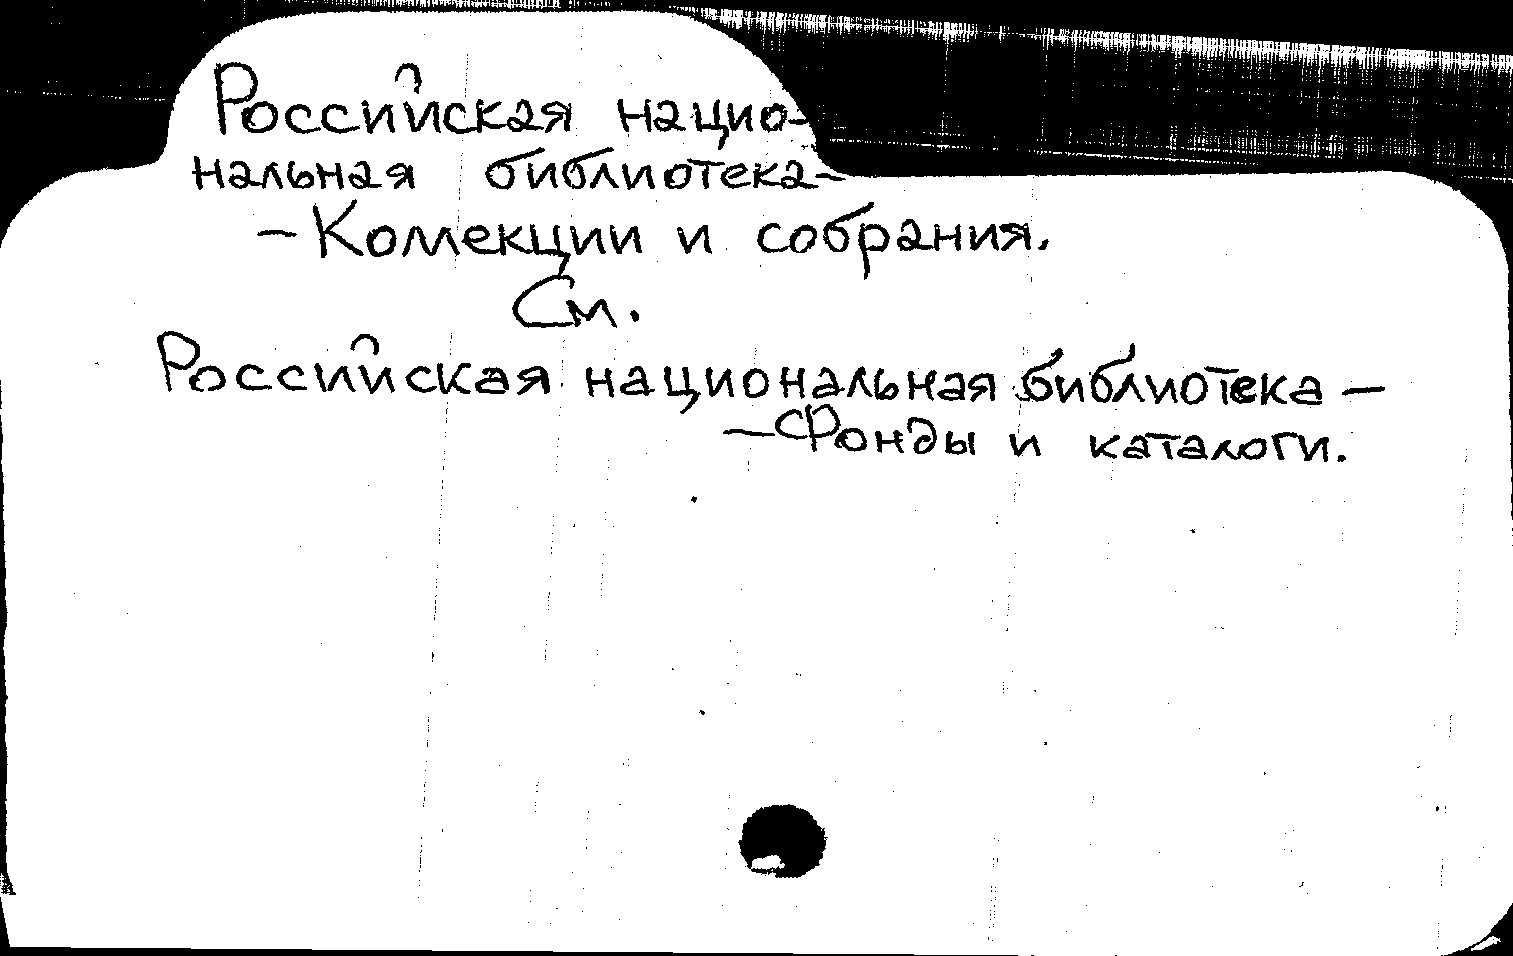 Российская нацио-
нальная библиотека-
- Коллекции и собрания.
См.
Российская национальная библиотека -
- Фонды и каталоги.